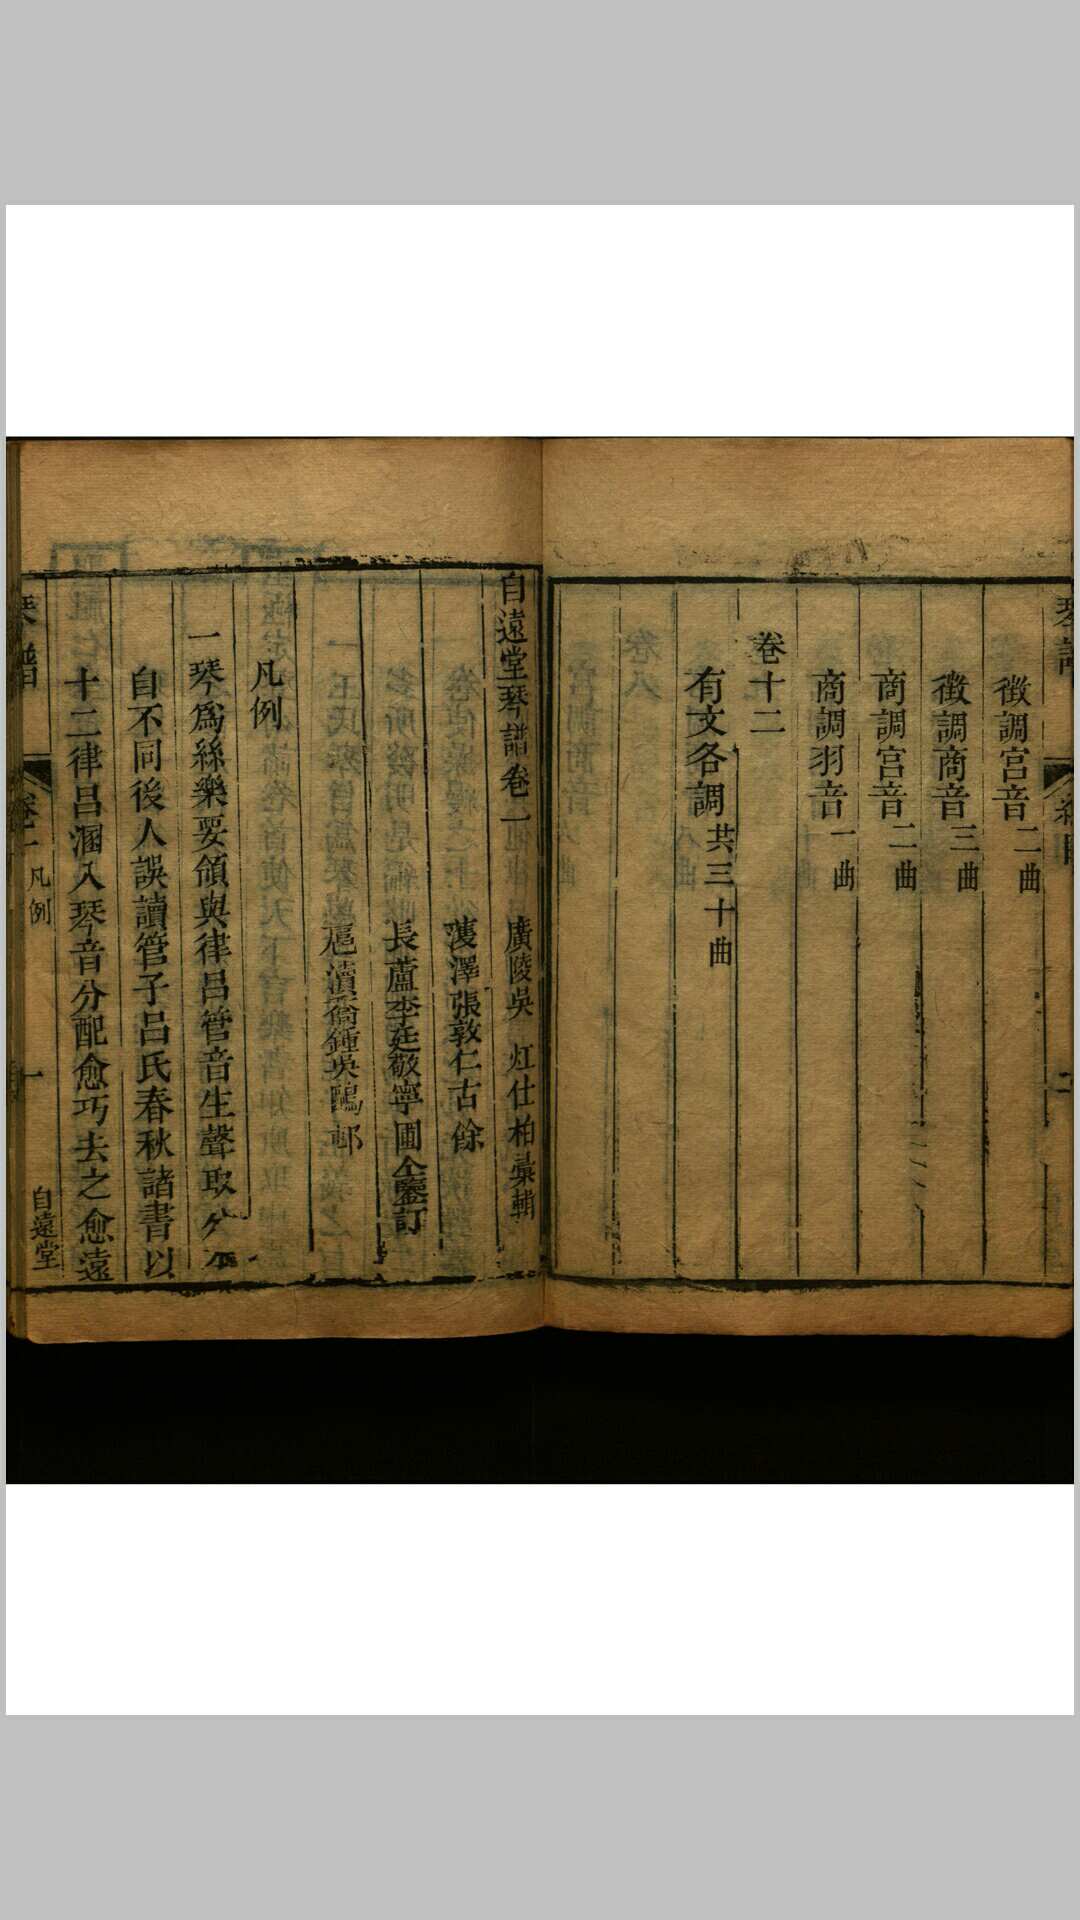 徵調宮音二曲
徵調商音三曲
商調宮音二曲
商調羽音一曲
卷十二
有文各調共三十曲
自遠堂琴譜卷一
廣陵吳 灴仕柏彙輯
濩澤張敦仁古餘
長蘆李廷敬寧圃仝鑒訂
喬鍾吳鷗邨
凡例
一琴爲絲樂要領與律呂管音生聲取分
自不同後人誤讀管子呂氏春秋諸書以
十二律呂溷入琴音分配愈巧去之愈遠
琴譜
卷一
凡例
一
自遠堂